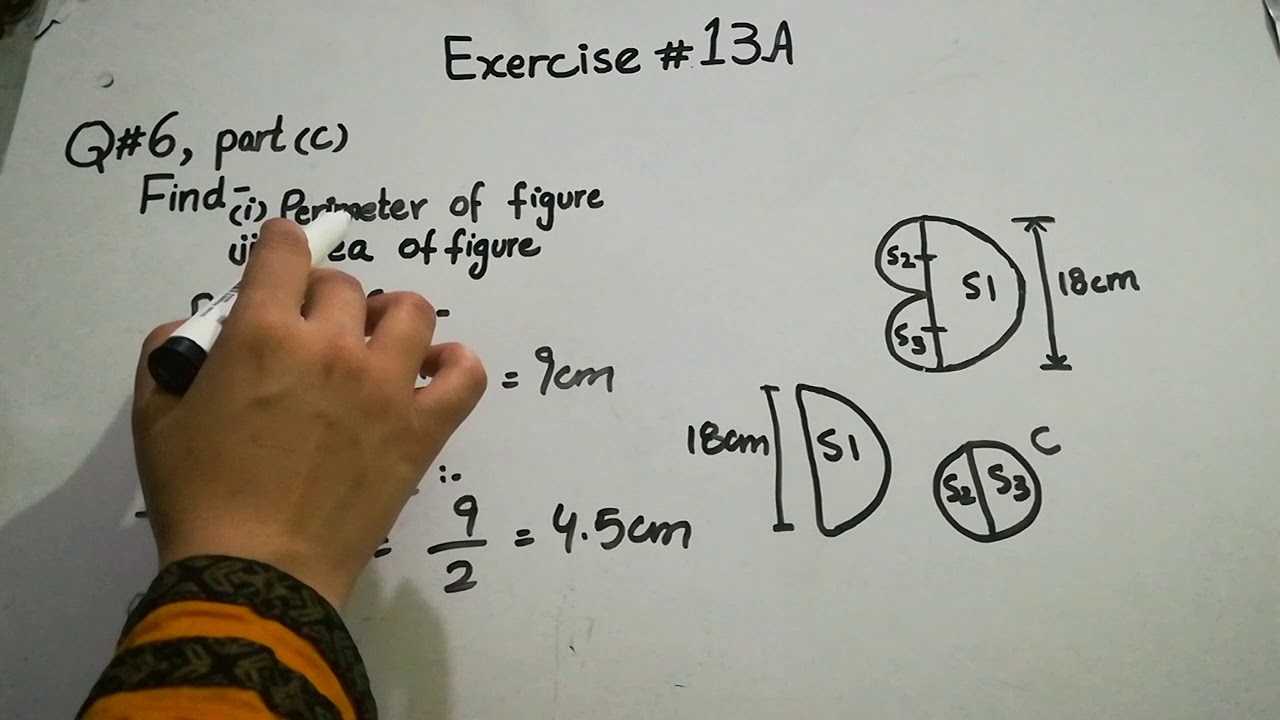 Exercise #13A
Q#6, part (C)
Find:-
(i) Perimeter of figure
(ii) of figure
= 9cm
:-
= 9/2 = 4.5cm
S2
S1
S3
18cm
18cm
S1
S2 S3
C